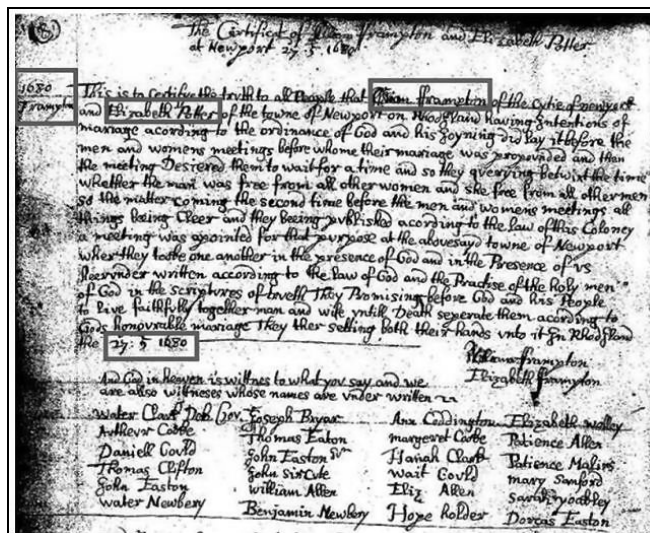 (8)
The Certificat of William frampton and Elizabeth Potter
at Newport 27. 5. 1680
1680
Frampton
This is to certifie the truth to all People that William fframpton of the Cytie of newyork
and Elizabeth Potter of the towne of Newport on Rhodisland having Intentions of
mariage acording to the ordinance of God and his Joyning did lay it before the
men and womens meetings before whome their mariage was propounded and than
the meeting Desiered them to wait for a time and so they querying betwixt the time
whether the man was free from all other women and she free from all other men
so the matter coming the second time before the men and womens meetings all
things being Cleer and they beeing published acording to the law of this Coloney
a meeting was apointed for that purpose at the abovesayd towne of Newport
wher they tooke one another in the presence of God and in the Presence of vs
heervnder written according to the law of God and the Practise of the holy men
of God in the scriptures of trveth They Promising before God and his People
to live faithfully together man and wife vntill Death seperate them acording to
Gods honovrable mariage They ther setting both their hands vnto it In RhodIland
the 27: 5 1680
William frampton
Elizabeth frampton
And God in heaven is wittnes to what you say and we
are also wittneses whose names are vnder written
Water Clark Deb Gov. Joseph Bryar Ann Coddington Elizabeth
Arthevr Cooke Thomas Eaton margeret Cooke Patience Allen
Daniell Govld John Easton Sur Hanah Clark Patience Malins
Thomas Clifton John wait Govld mary Sanford
John Easton william Allen Eliz Allen sarah
water Newbery Benjamin Newbery Hope holder Dorcas Easton